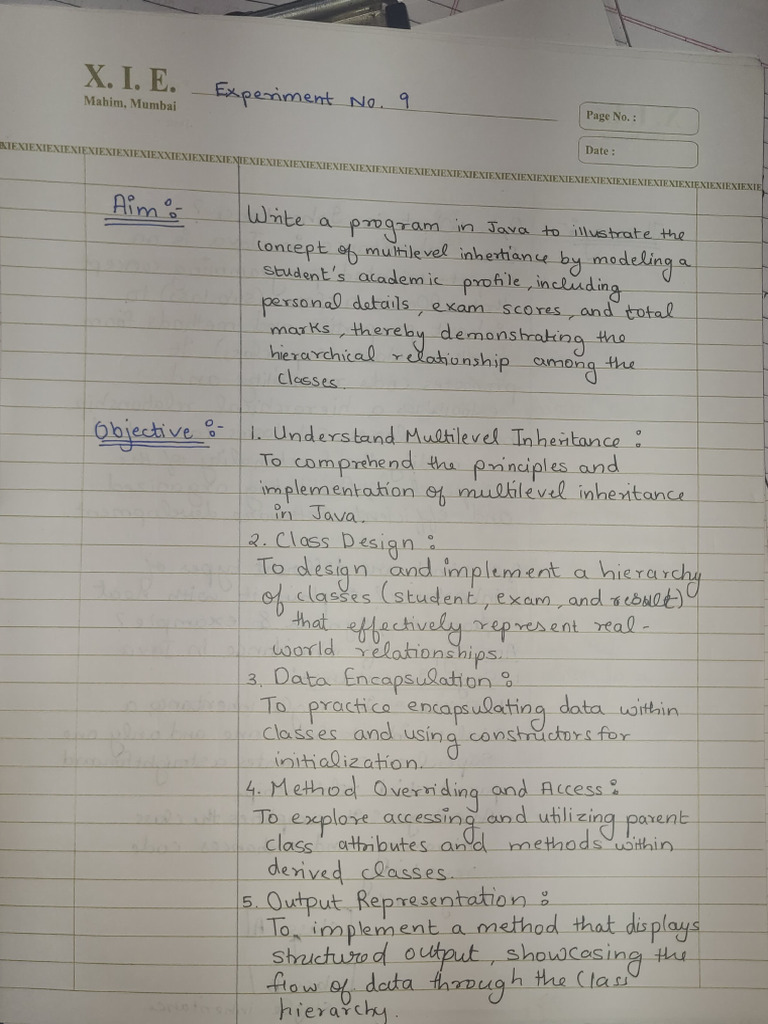 X. I. E.
Mahim, Mumbai
Experiment No. 9
Page No. :
Date :
XIEXIEXIEXIEXIEXIEXIEXXIEXIEXIEXIEXIEXIEXIEXIEXIEXIEXIEXIEXIEXIEXIEXIEXIEXIEXIEXIEXIEXIEXIEXIE
Aim :-
Write a program in Java to illustrate the
concept of multilevel inhertiance by modeling a
student's academic profile, including
personal details, exam scores, and total
marks, thereby demonstrating the
hierarchical relationship among the
classes.
Objective :-
1. Understand Multilevel Inheritance :
To comprehend the principles and
implementation of multilevel inheritance
in Java.
2. Class Design :
To design and implement a hierarchy
of classes (student, exam, and result)
that effectively represent real-
world relationships.
3. Data Encapsulation :
To practice encapsulating data within
classes and using constructors for
initialization.
4. Method Overriding and Access :
To explore accessing and utilizing parent
class attributes and methods within
derived classes.
5. Output Representation :
To implement a method that displays
structured output, showcasing the
flow of data through the class
hierarchy.